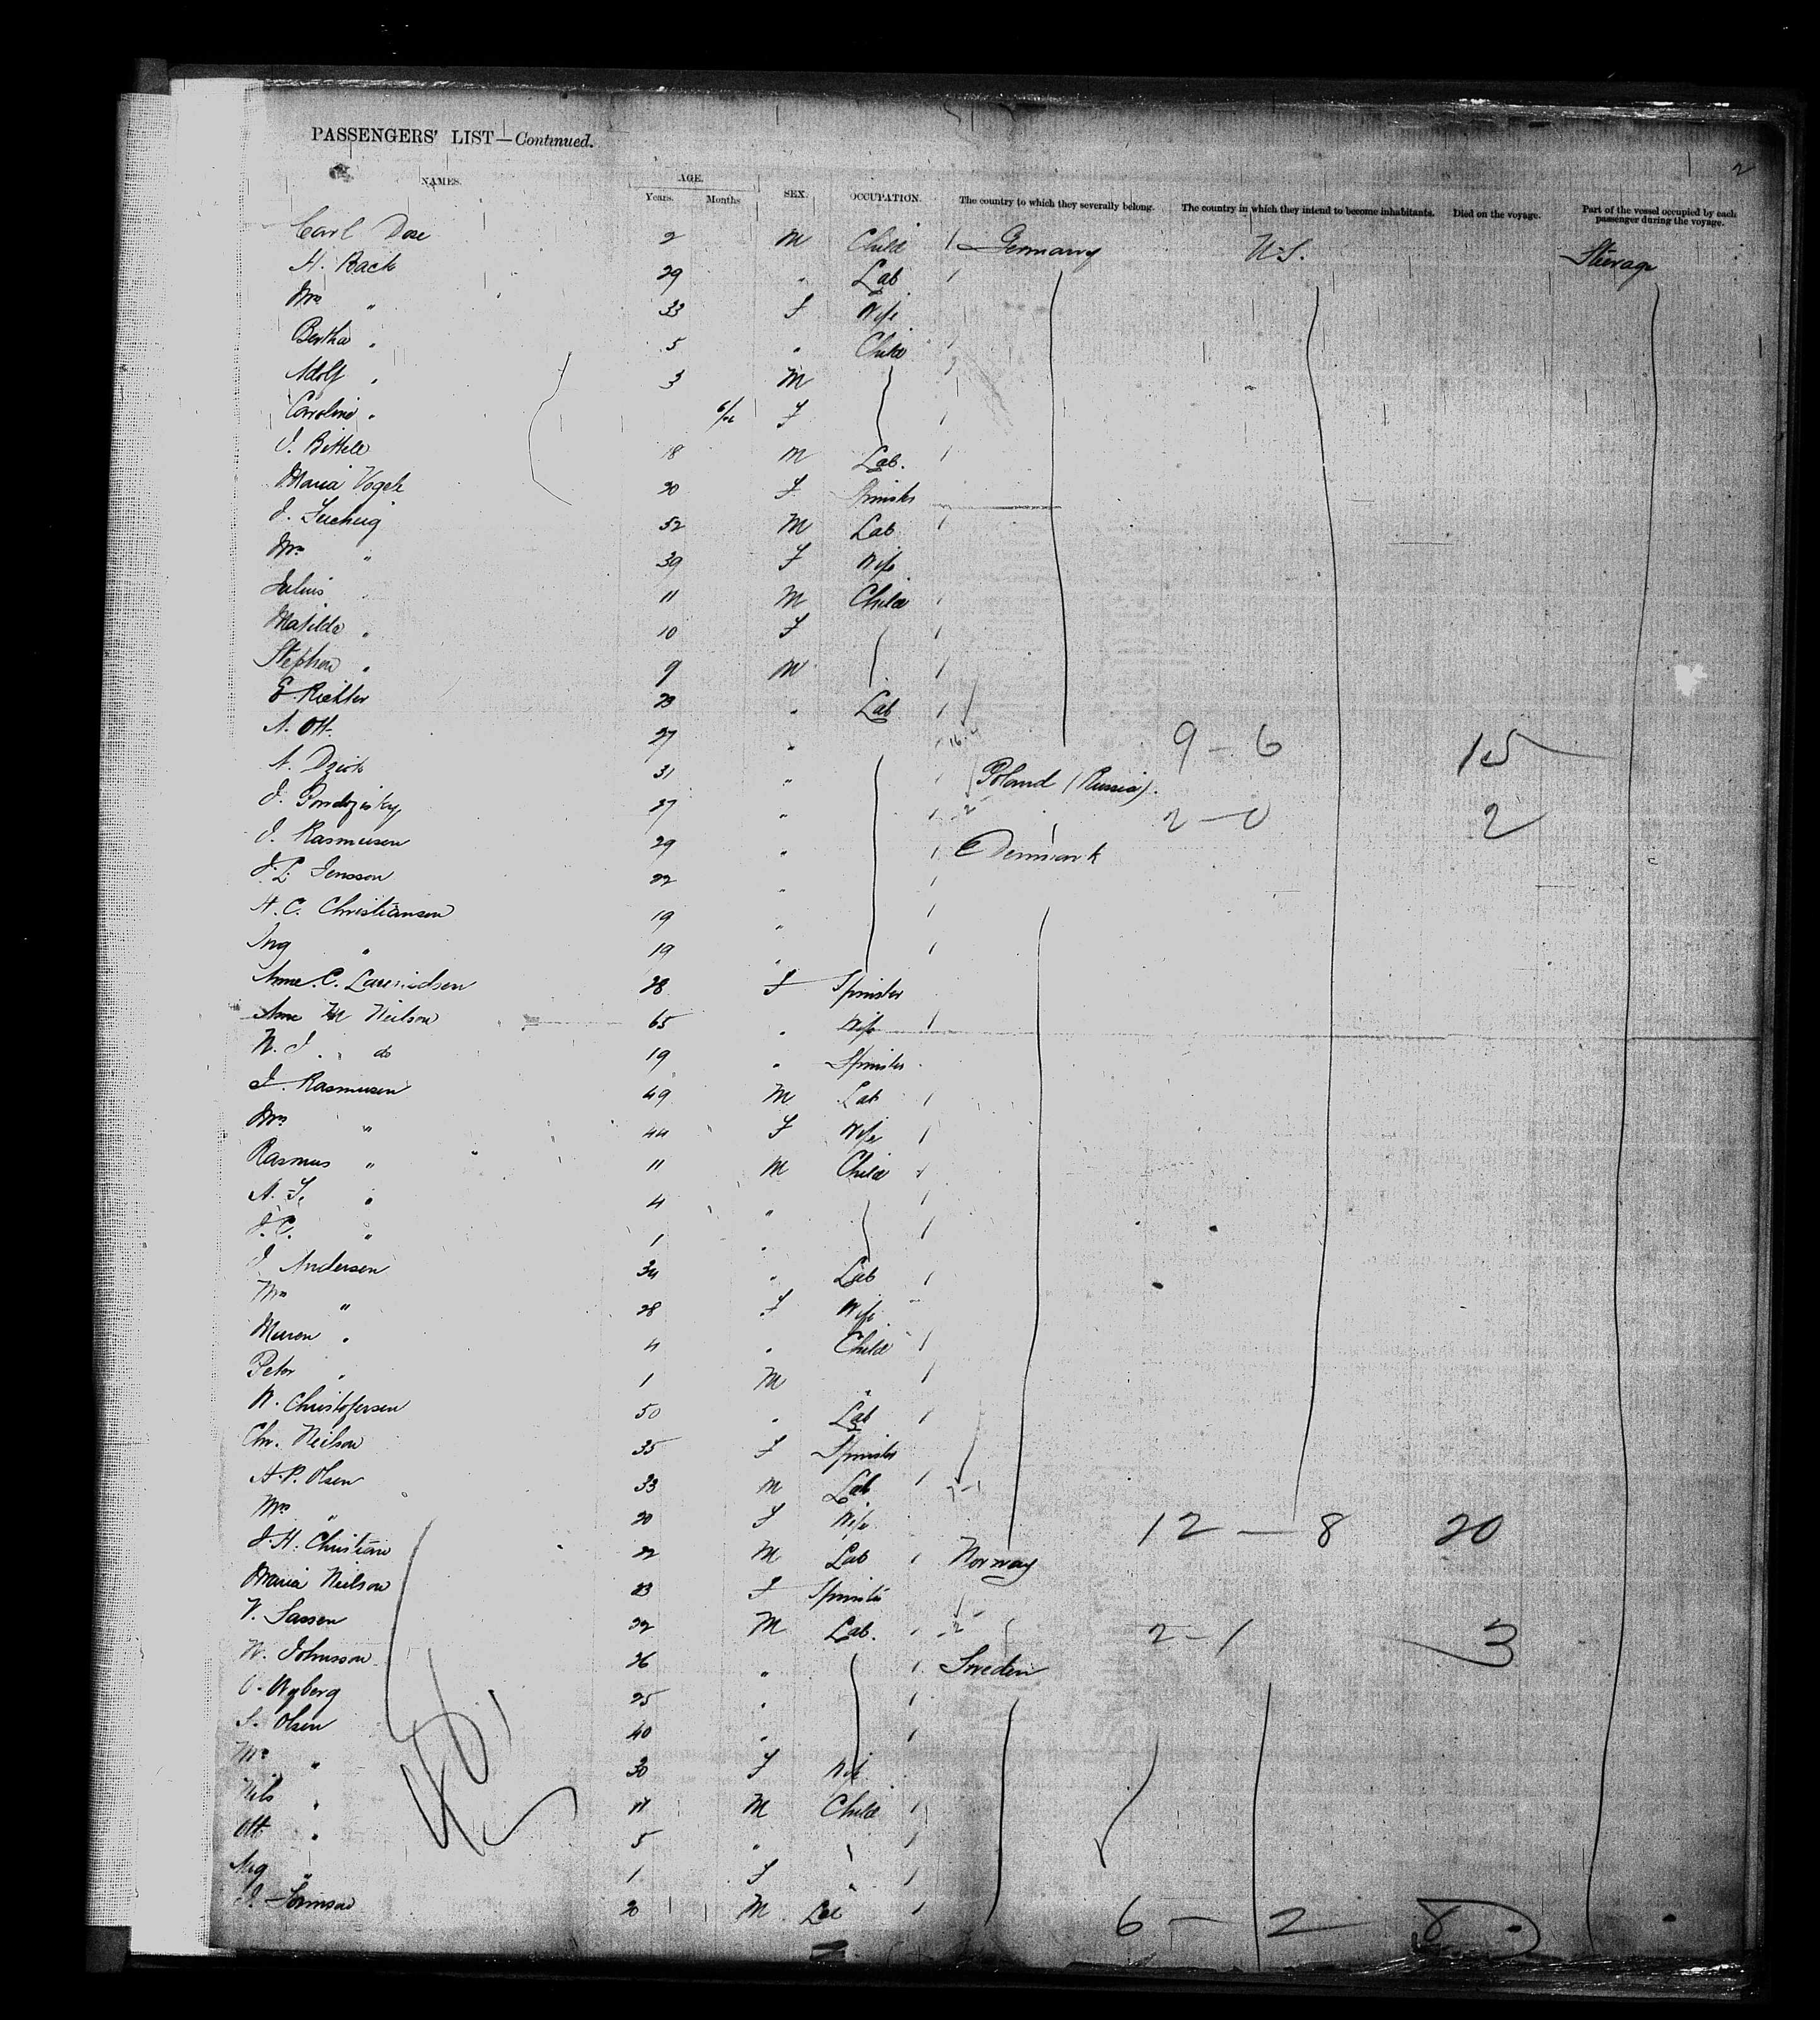 PASSENGERS' LIST—Continued.
2
NAMES. AGE. SEX. OCCUPATION. The country to which they severally belong. The country in which they intend to become inhabitants. Died on the voyage. Part of the vessel occupied by each passenger during the voyage.
Years. Months
Carl Dose 2 M Child 1 Germany U.S. Steerage
H. Back 29 " Lab 1
Mrs " 33 F Wife
Bertha " 5 " Child
Adolf " 3 M 1
Caroline " 6/12 F 1
J. Bittele 18 M Lab. 1
Maria Vogel 20 F Spinster
J. 52 M Lab 1
Mrs " 39 F Wife
Julius 11 M Child 1
Matilda " 10 F 1
Stephen " 9 M 1
E. Richter 23 " Lab 1
A. Ott 27 " 1 9 - 6 15
A. 31 " 1 Poland (Russia).
J. 27 " 1 2 2 - 0 2
J. Rasmussen 29 " 1 Denmark
J. L. Jensson 22 " 1
H. C. Christiansen 19 " 1
Ing " 19 " 1
Anne C. 28 F Spinster
Anne M Neilson 65 " Wife 1
N. J. " do 19 " Spinster
J. Rasmussen 49 M Lab 1
Mrs " 44 F Wife 1
Rasmus " 11 M Child 1
A. F. " 4 " 1
J. C. " 1 " 1
J Andersen 34 " Lab 1
Mrs " 28 F Wife
Maren " 4 " Child 1
Peter " 1 M 1
N. Christofersen 50 " Lab 1
Chr. Neilson 35 F Spinster
A. P. Olsen 33 M Lab 1
Mrs " 20 F Wife 12 — 8 20
J. H. Christian 22 M Lab 1 Norway
Maria Neilson 23 F Spinster
V. Sassen 32 M Lab. 1 2 2 - 1 3
N. Johnsson 26 " 1 Sweden
O. Nyberg 25 " 1
S. Olsen 40 " 1
Mrs " 30 F Wife
Nils " 11 M Child 1
Ott " 5 " 1
" 1 F 1
J. 20 M Lab 1 6 — 2 8